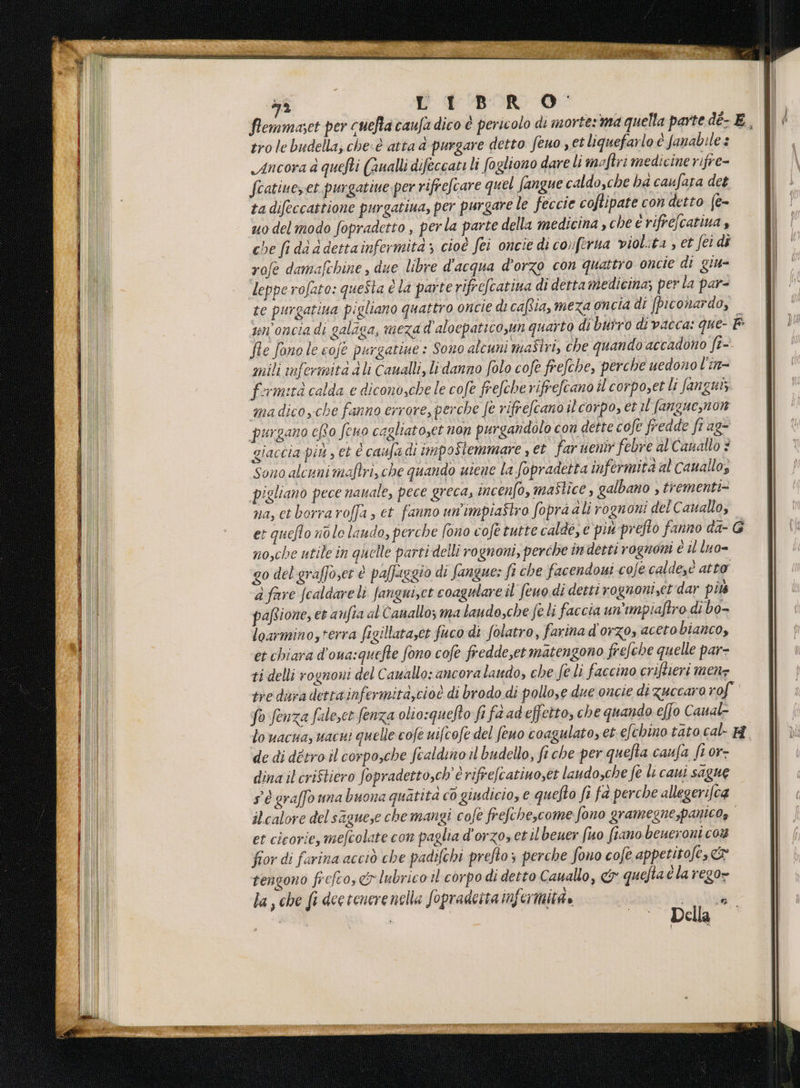 72 LIBRO
flemma;et per cuesta causa dico è pericolo di morte: ma quella parte dē- E
tro le budella, che è atta à purgare detto seuo, et liquefarlo è sanabile:
Ancora à questi Caualli diseccati li sogliono dare li mastri medicine rifre-
scatiue, et purgatiue per rifrescare quel sangue caldo, che hà causata det
ta diseccattione purgatiua, per purgare le feccie costipate con detto se-
uo del modo sopradetto, per la parte della medicina, che è rifrescatiua,
che si dà à detta infermità; cioè sei oncie di conserua violata, et sei di
rose damaschine, due libre d'acqua d'orzo con quattro oncie di giu-
leppe rosato: questa è la parte rifrescatiua di detta medicina; per la par-
te purgatiua pigliano quattro oncie di cassia, meza oncia di spiconardo,
un'oncia di galāga, meza d'aloepatico, un quarto di buiro di vacca: que- F
ste sono le cose purgatiue: Sono alcuni mastri, che quando accadono si-
mili infermità à li Caualli, li danno solo cose fresche, perche uedono l'in-
fermità calda e dicono, che le cose fresche rifrescano il corpo, et li sangui;
ma dico, che fanno errore, perche se rifrescano il corpo, et il sangue, non
purgano esso seuo cagliato, et non purgandolo con dette cose fredde si ag-
giaccia più, et è causa di impostemmare, et far uenir febre al Cauallo:
Sono alcuni mastri, che quando uiene la sopradetta infermità al Cauallo,
pigliano pece nauale, pece greca, incenso, mastice, galbano, trementi-
na, et borra rossa, et fanno un'impiastro sopra à li rognoni del Cauallo,
et questo nō lo laudo, perche sono cose tutte calde, e più presto fanno da- G
no, che utile in quelle parti delli rognoni, perche in detti rognoni è il luo-
go del grasso, et è passaggio di sangue: si che facendoui cose calde, è atto
à fare scaldare li sangui, et coagulare il seuo di detti rognoni, et dar più
passione, et ansia al Cauallo; ma laudo, che se li faccia un'impiastro di bo-
loarmino, terra sigillata, et suco di solatro, farina d'orzo, aceto bianco,
et chiara d'oua: queste sono cose fredde, et mātengono fresche quelle par-
ti delli rognoni del Cauallo: ancora laudo, che se li faccino cristieri men-
tre dura detta infermità, cioè di brodo di pollo, e due oncie di zuccaro ros
so senza sale, et senza olio: questo si fà ad effetto, che quando esso Caual-
lo uacua, uacui quelle cose uiscose del seuo coagulato, et eschino tāto cal- H
de di dētro il corpo, che scaldino il budello, si che per questa causa si or-
dina il cristiero sopradetto, ch'è rifrescatiuo, et laudo, che se li caui sāgue
s'è grasso una buona quātità cō giudicio, e questo si fà perche allegerisca
il calore del sāgue, e che mangi cose fresche, come sono gramegne, panico,
et cicorie, mescolate con paglia d'orzo, et il beuer suo siano beueroni con
fior di farina acciò che padischi presto; perche sono cose appetitose, &
tengono fresco, & lubrico il corpo di detto Cauallo, & questa è la rego-
la, che si dee tenere nella sopradetta infermità.
Della